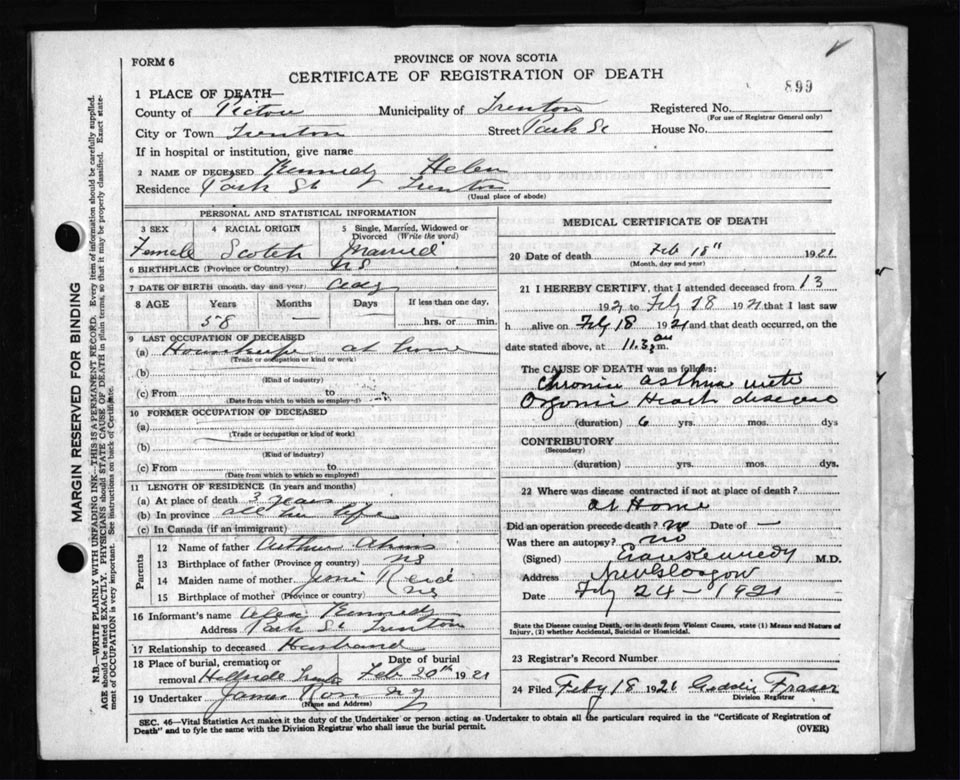 FORM 6
PROVINCE OF NOVA SCOTIA
CERTIFICATE OF REGISTRATION OF DEATH
899
1 PLACE OF DEATH—
County of Pictou Municipality of Trenton Registered No.
(For use of Registrar General only)
City or Town Trenton Street Park St House No.
If in hospital or institution, give name
2 NAME OF DECEASED Kennedy Helen
Residence Park St Trenton
(Usual place of abode)
PERSONAL AND STATISTICAL INFORMATION
3 SEX 4 RACIAL ORIGIN 5 Single, Married, Widowed or Divorced (Write the word)
Female Scotch Married
6 BIRTHPLACE (Province or Country) NS
7 DATE OF BIRTH (month, day and year)
8 AGE Years Months Days If less than one day,
58 — — hrs. or min.
9 LAST OCCUPATION OF DECEASED
(a) at home
(Trade or occupation or kind of work)
(b)
(Kind of industry)
(c) From to
(Date from which to which so employed)
10 FORMER OCCUPATION OF DECEASED
(a)
(Trade or occupation or kind of work)
(b)
(Kind of industry)
(c) From to
(Date from which to which so employed)
11 LENGTH OF RESIDENCE (In years and months)
(a) At place of death 3 years
(b) In province all her life
(c) In Canada (if an immigrant)
Parents
12 Name of father Arthur
13 Birthplace of father (Province or country) NS
14 Maiden name of mother Reid
15 Birthplace of mother (Province or country) NS
16 Informant's name Alex Kennedy
Address Park St Trenton
17 Relationship to deceased Husband
18 Place of burial, cremation or removal Hillside Date of burial Feb 20th 1921
19 Undertaker James Ross
(Name and Address)
MEDICAL CERTIFICATE OF DEATH
20 Date of death Feb 18th 1921
(Month, day and year)
21 I HEREBY CERTIFY, that I attended deceased from 13
1921 to Feby 18 1921 that I last saw
h alive on Feby 18 1921 and that death occurred, on the
date stated above, at 11.30 am.
The CAUSE OF DEATH was as follows:
Chronic asthma with
Organic Heart disease
(duration) 6 yrs. mos. dys
CONTRIBUTORY
(Secondary)
(duration) yrs. mos. dys.
22 Where was disease contracted if not at place of death?
at Home
Did an operation precede death? no Date of —
Was there an autopsy? no
(Signed) Kennedy M.D.
Address New Glasgow
Date Feby 24 – 1921
State the Disease causing Death, or in death from Violent Causes, state (1) Means and Nature of
Injury, (2) whether Accidental, Suicidal or Homicidal.
23 Registrar's Record Number
24 Filed Feby 18 1921 Fraser
Division Registrar
SEC. 46—Vital Statistics Act makes it the duty of the Undertaker or person acting as Undertaker to obtain all the particulars required in the "Certificate of Registration of
Death" and to fyle the same with the Division Registrar who shall issue the burial permit.
(OVER)
MARGIN RESERVED FOR BINDING
N.B.—WRITE PLAINLY WITH UNFADING INK—THIS IS A PERMANENT RECORD. Every item of information should be carefully supplied.
AGE should be stated EXACTLY. PHYSICIANS should STATE CAUSE OF DEATH in plain terms, so that it may be properly classified. Exact state-
ment of OCCUPATION is very important. See instructions on back of Certificate.